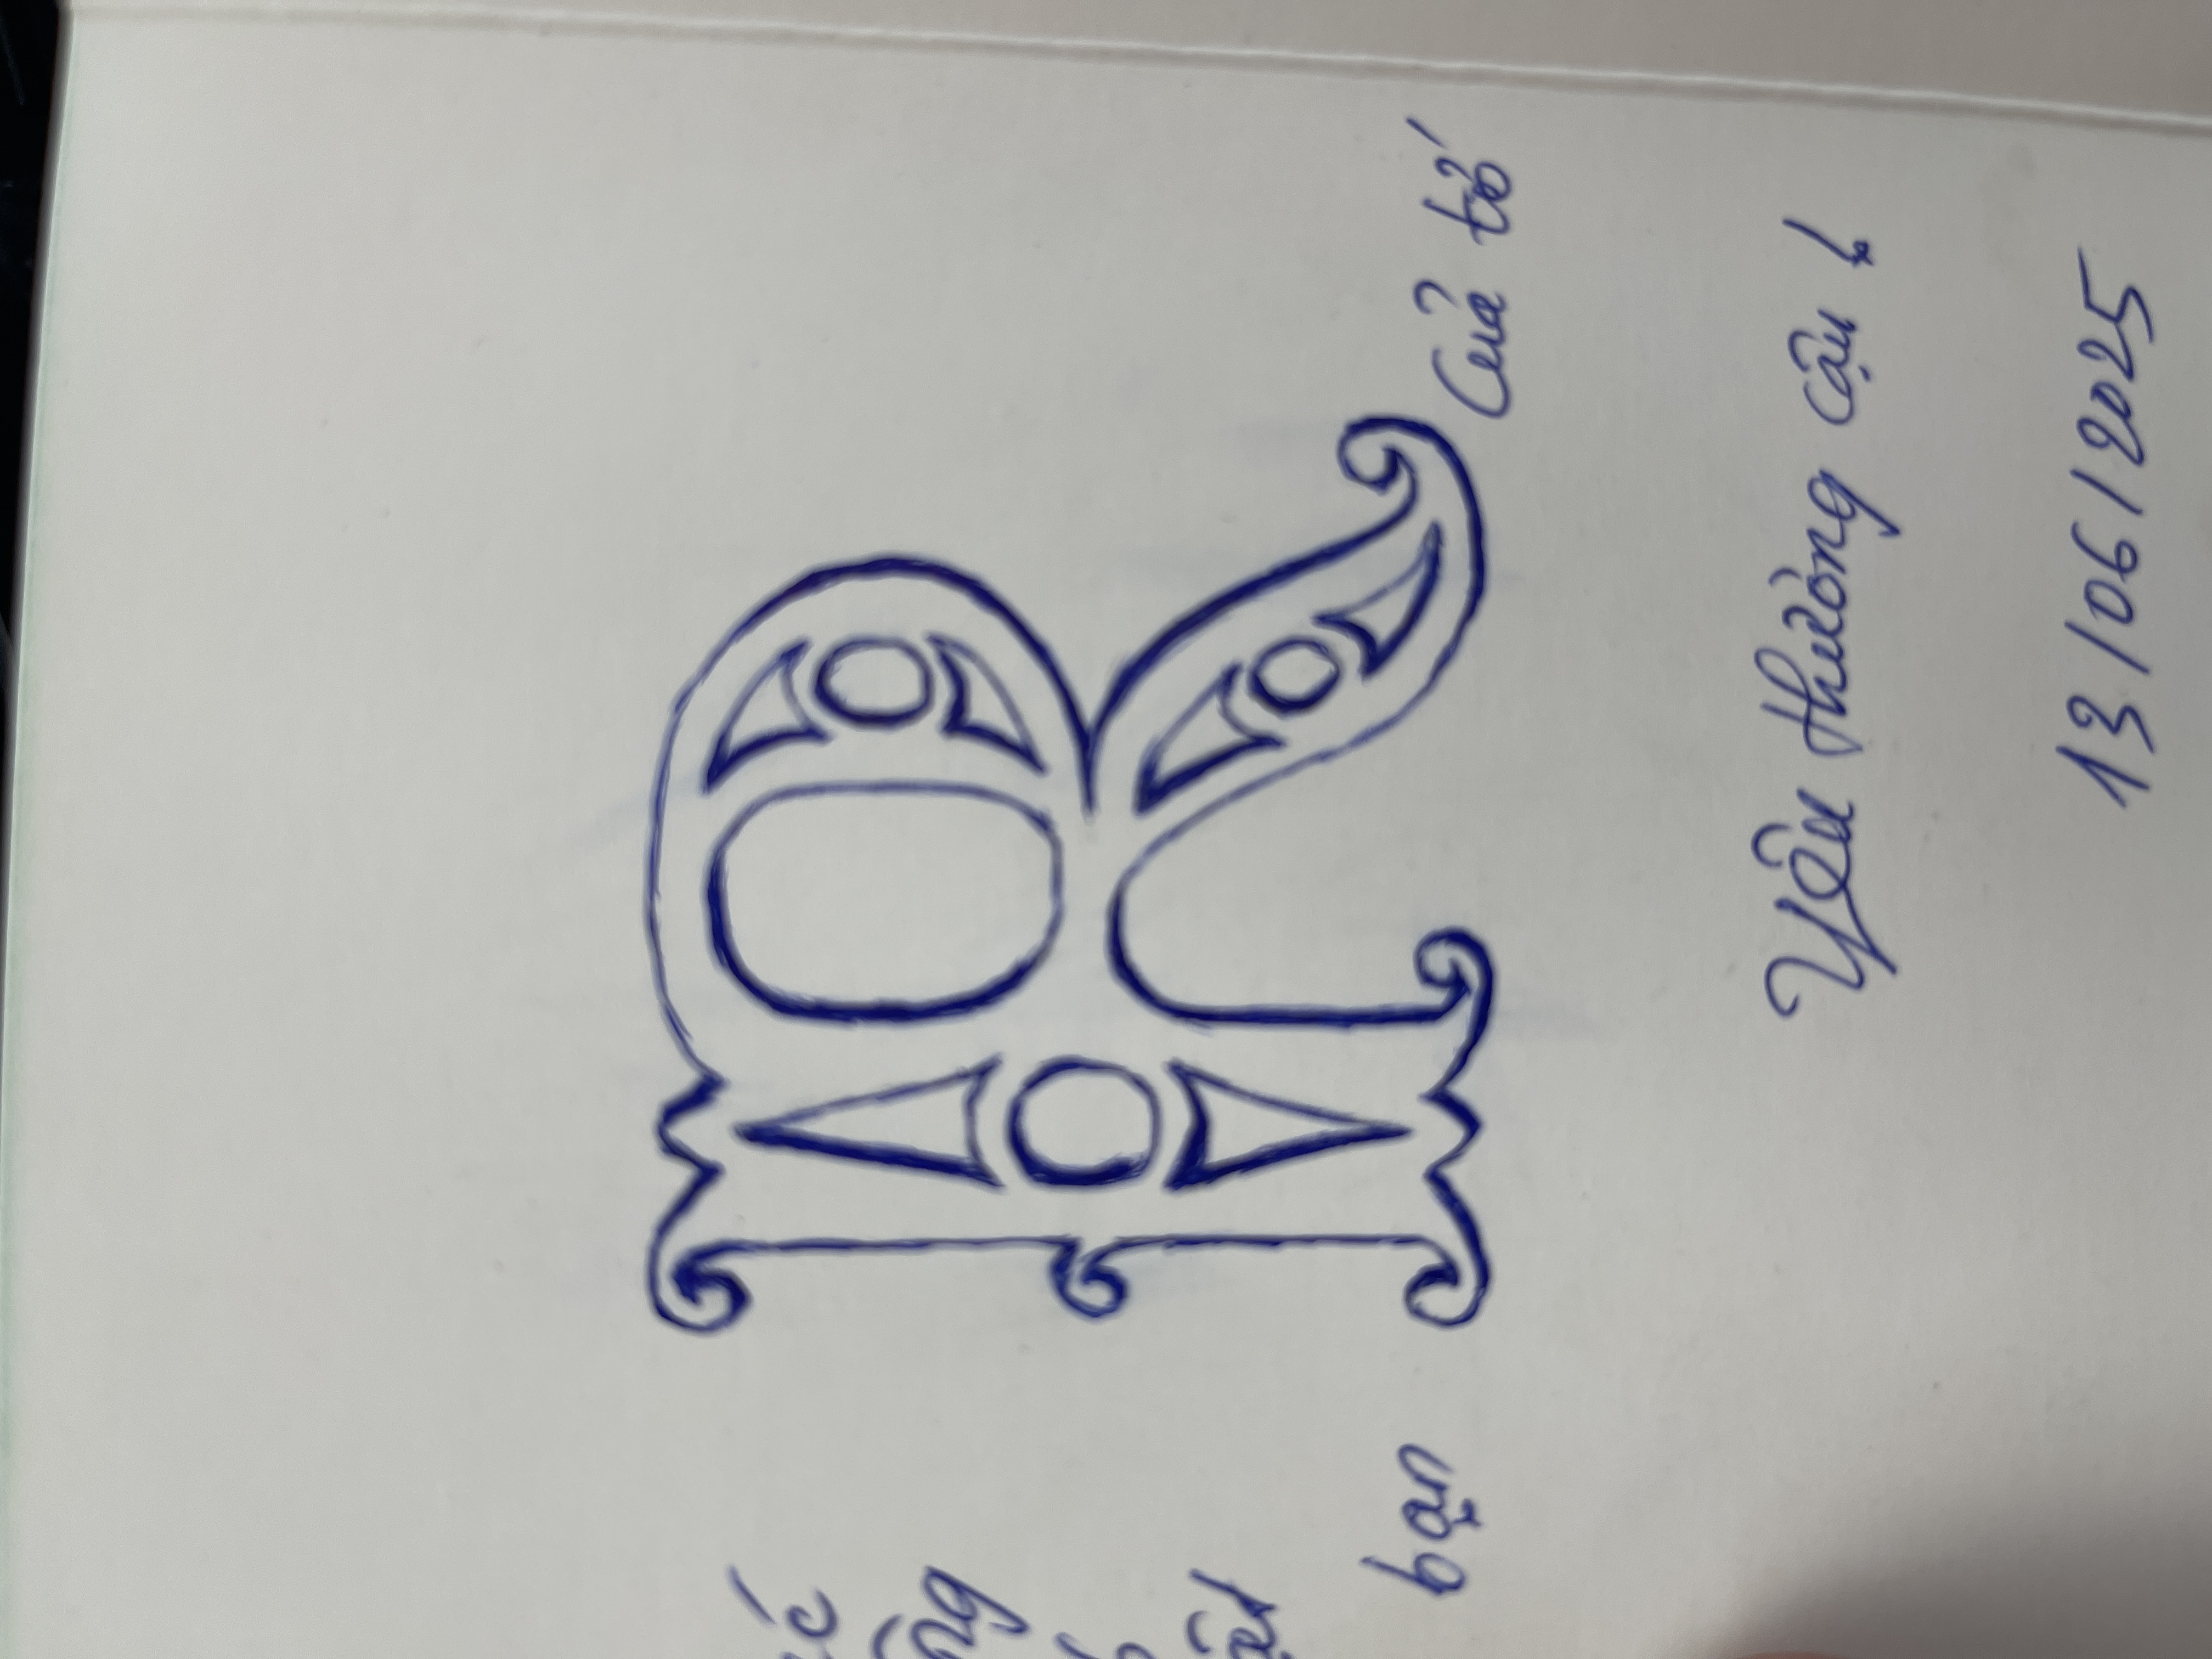 bạn R Của tớ
Yêu thương cậu !
13/06/2025